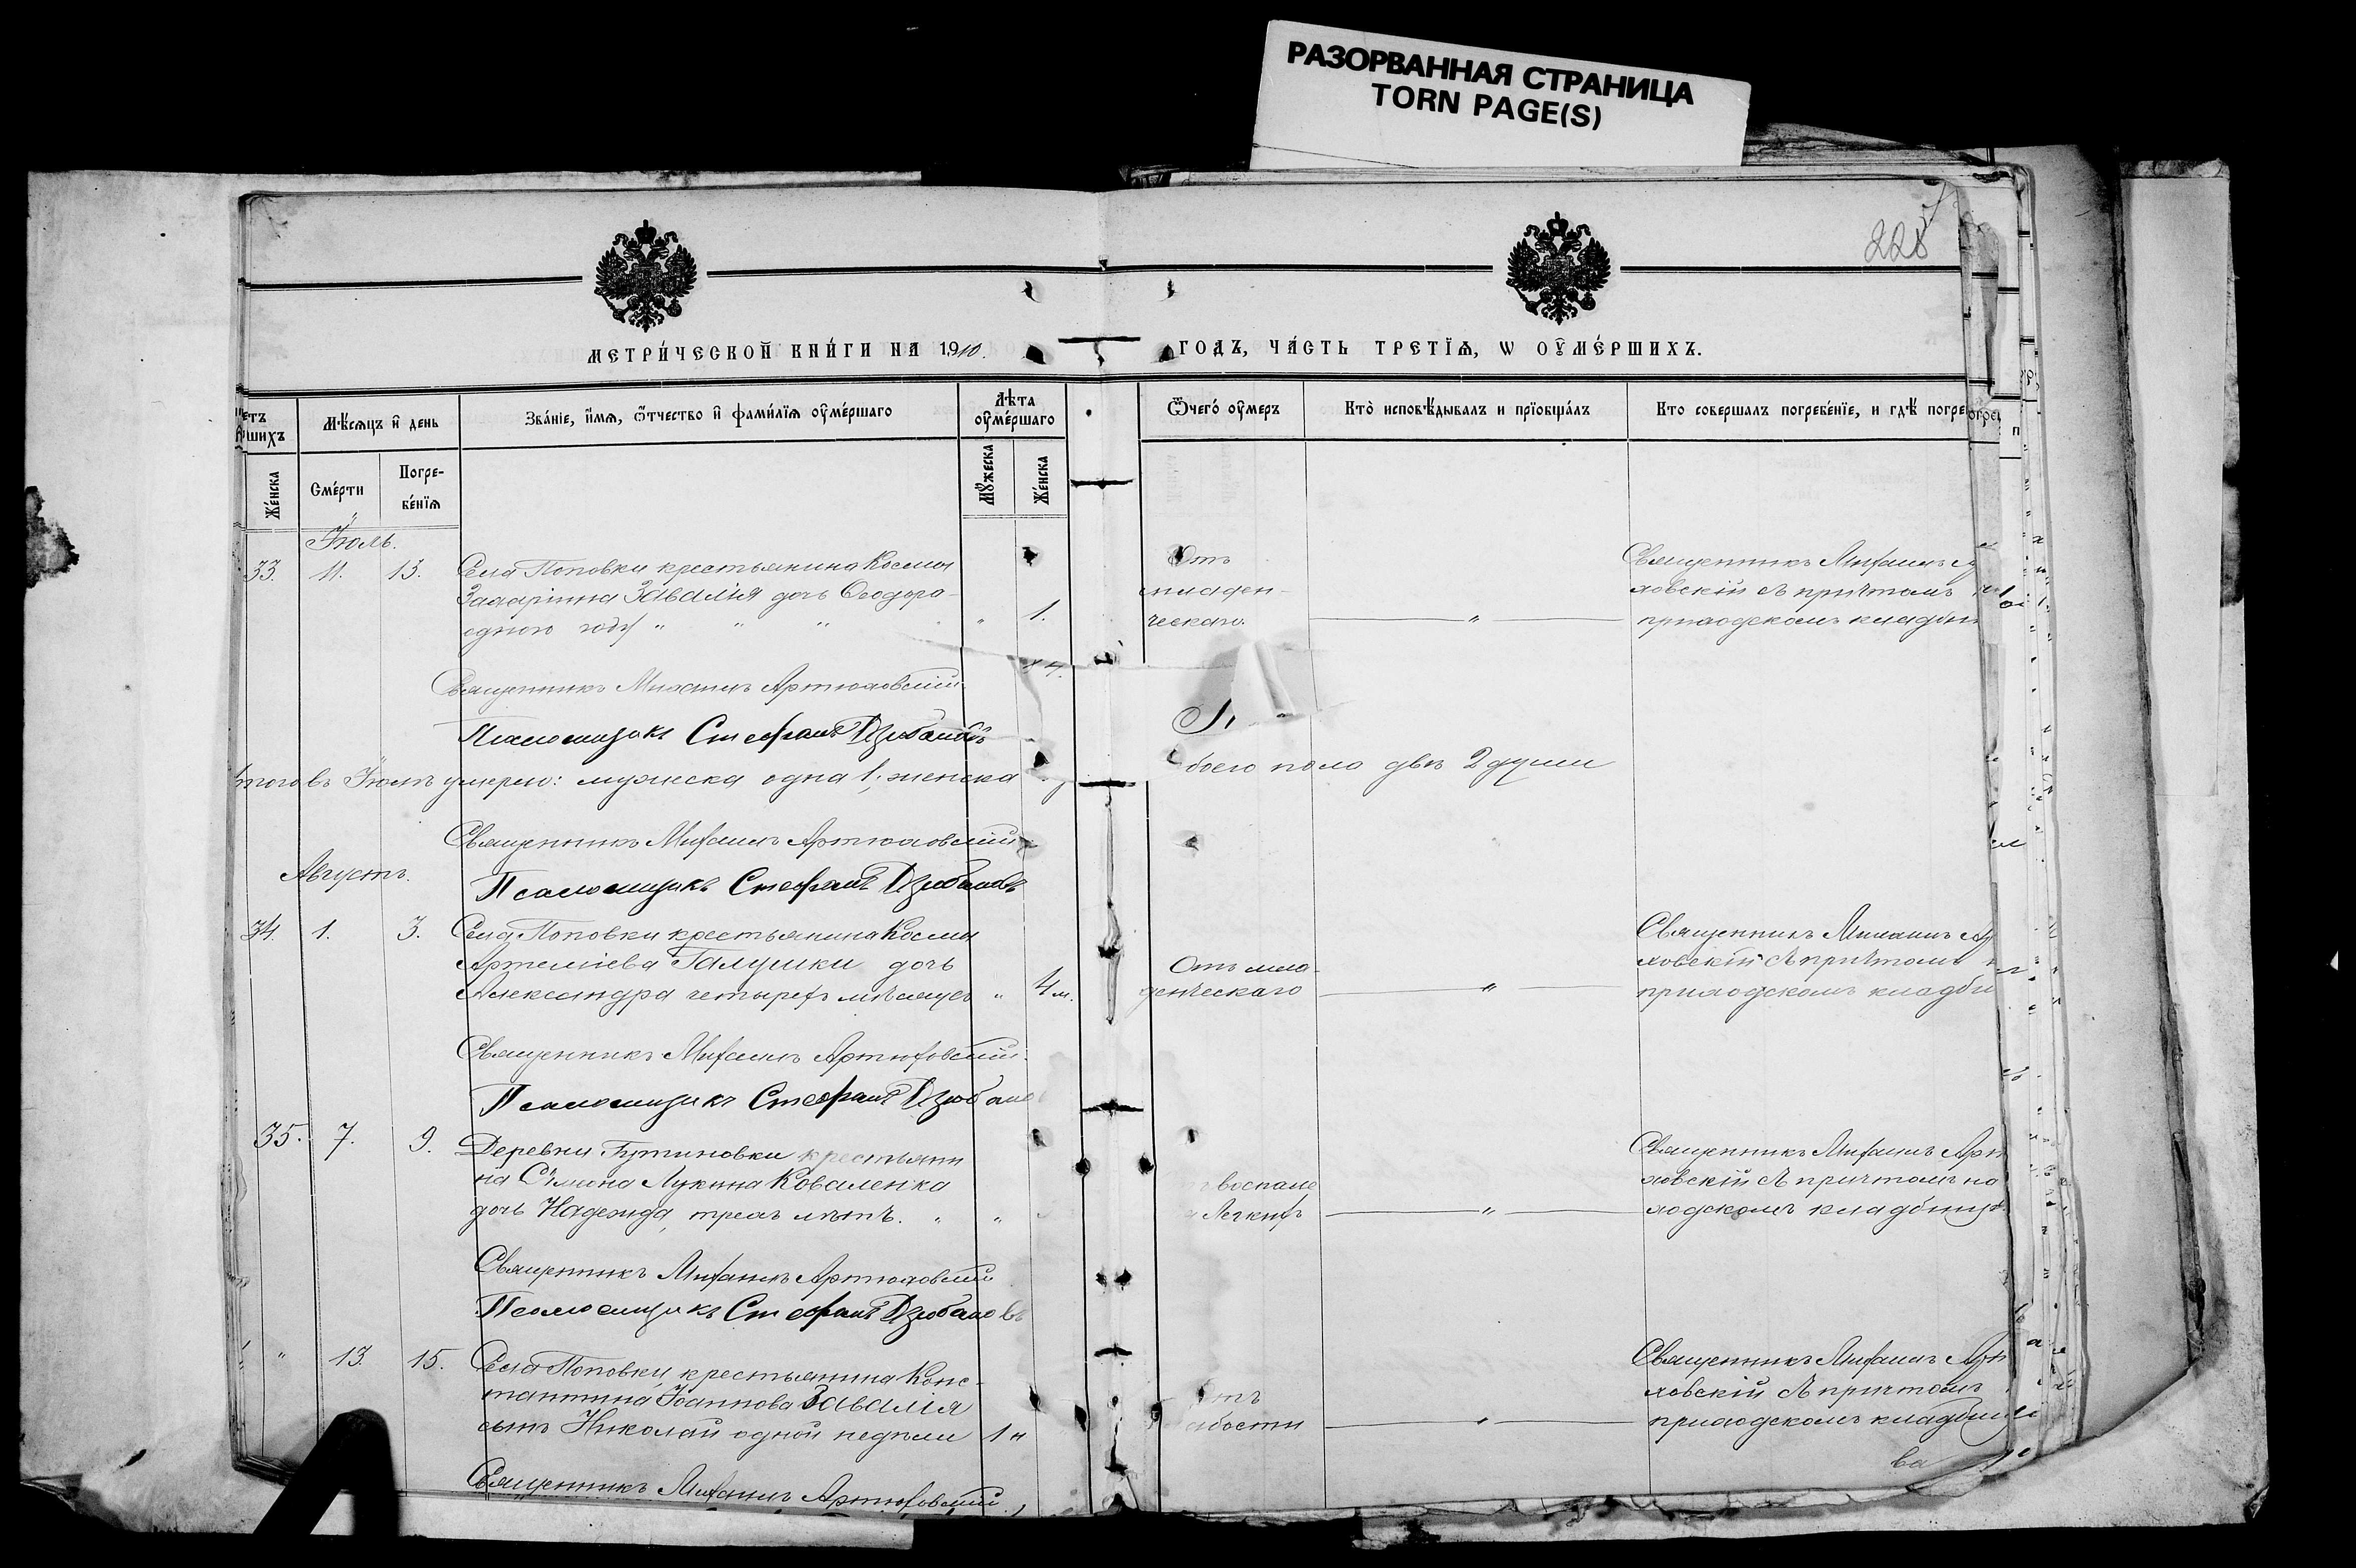 РАЗОРВАННАЯ СТРАНИЦА
TORN PAGE(S)
228
МЕТРИ́ЧЕСКОЙ КНИ́ГИ НА 1910.
ГОДЪ, ЧА́СТЬ ТРЕТІѦ, Ѡ ОУМЕ́РШИХЪ.
Мѣ́сѧцъ и день
Зва́ніе, и́мѧ, ѻ́тчество и фами́лїѧ оуме́ршаго
Лѣта оуме́ршаго
Ѿ чегѡ́ оумеръ
Кто̀ исповѣ́дывалъ и прїобща́лъ
Кто совершалъ погребе́нїе, и гдѣ̀ погре
Же́нска
Сме́рти
Погре-
бе́нїѧ
Мꙋ́жеска
Же́нска
Іюль.
33. 11. 13. Села Поповки крестьянина Космы
Захаріина Завалія дочь Ѳеодора
одного году " " " " 1.
Отъ
младен-
ческаго. "
Священникъ Михаилъ
ховскій съ причтомъ
приходскомъ кладби
Священникъ Михаилъ Артюховскій
Псаломщикъ Стефанъ Дзюбановъ
Итого въ Іюлѣ умерло: мужеска одна 1; женска
боего пола двѣ 2 души
Священникъ Михаилъ Артюховскій
Августъ.
Псаломщикъ Стефанъ Дзюбановъ
34. 1. 3. Села Поповки крестьянина Космы
Артеміева Галушки дочь
Александра четырехъ мѣсяцевъ " 4 м.
Отъ мла-
денческаго "
Священникъ Михаилъ Ар
ховскій съ причтомъ
приходскомъ кладби
Священникъ Михаилъ Артюховскій.
Псаломщикъ Стефанъ Дзюбано
35. 7. 9. Деревни Гутиновки крестьяни
на Симона Лукина Коваленка
дочь Надежда, трехъ лѣтъ. " "
воспале
легкихъ "
Священникъ Михаилъ Арт
ховскій съ причтомъ на
ходскомъ кладбищѣ.
Священникъ Михаилъ Артюховскій
Псаломщикъ Стефанъ Дзюбановъ
" 13. 15. Села Поповки, крестьянина Конс-
тантина Іоаннова Завалія
сынъ Николай одной недѣли 1 н
Отъ
абости "
Священникъ Михаилъ Арт
ховскій съ причтомъ
приходскомъ кладбищ
Священникъ Михаилъ Артюховскій.